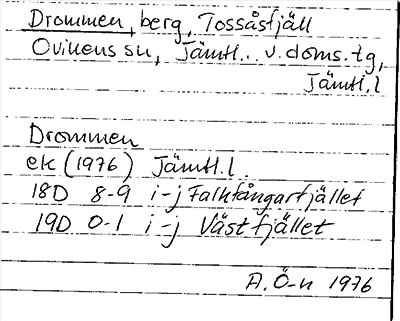 Drommen, berg, Tossåsfjäll
Ovikens sn, Jämtl. v. doms. tg,
Jämtl. l
Drommen
ek (1976) Jämtl. l.
18D 8-9 i-j Falkfångarfjället
19D 0-1 i-j Västfjället
A. Ö-n 1976